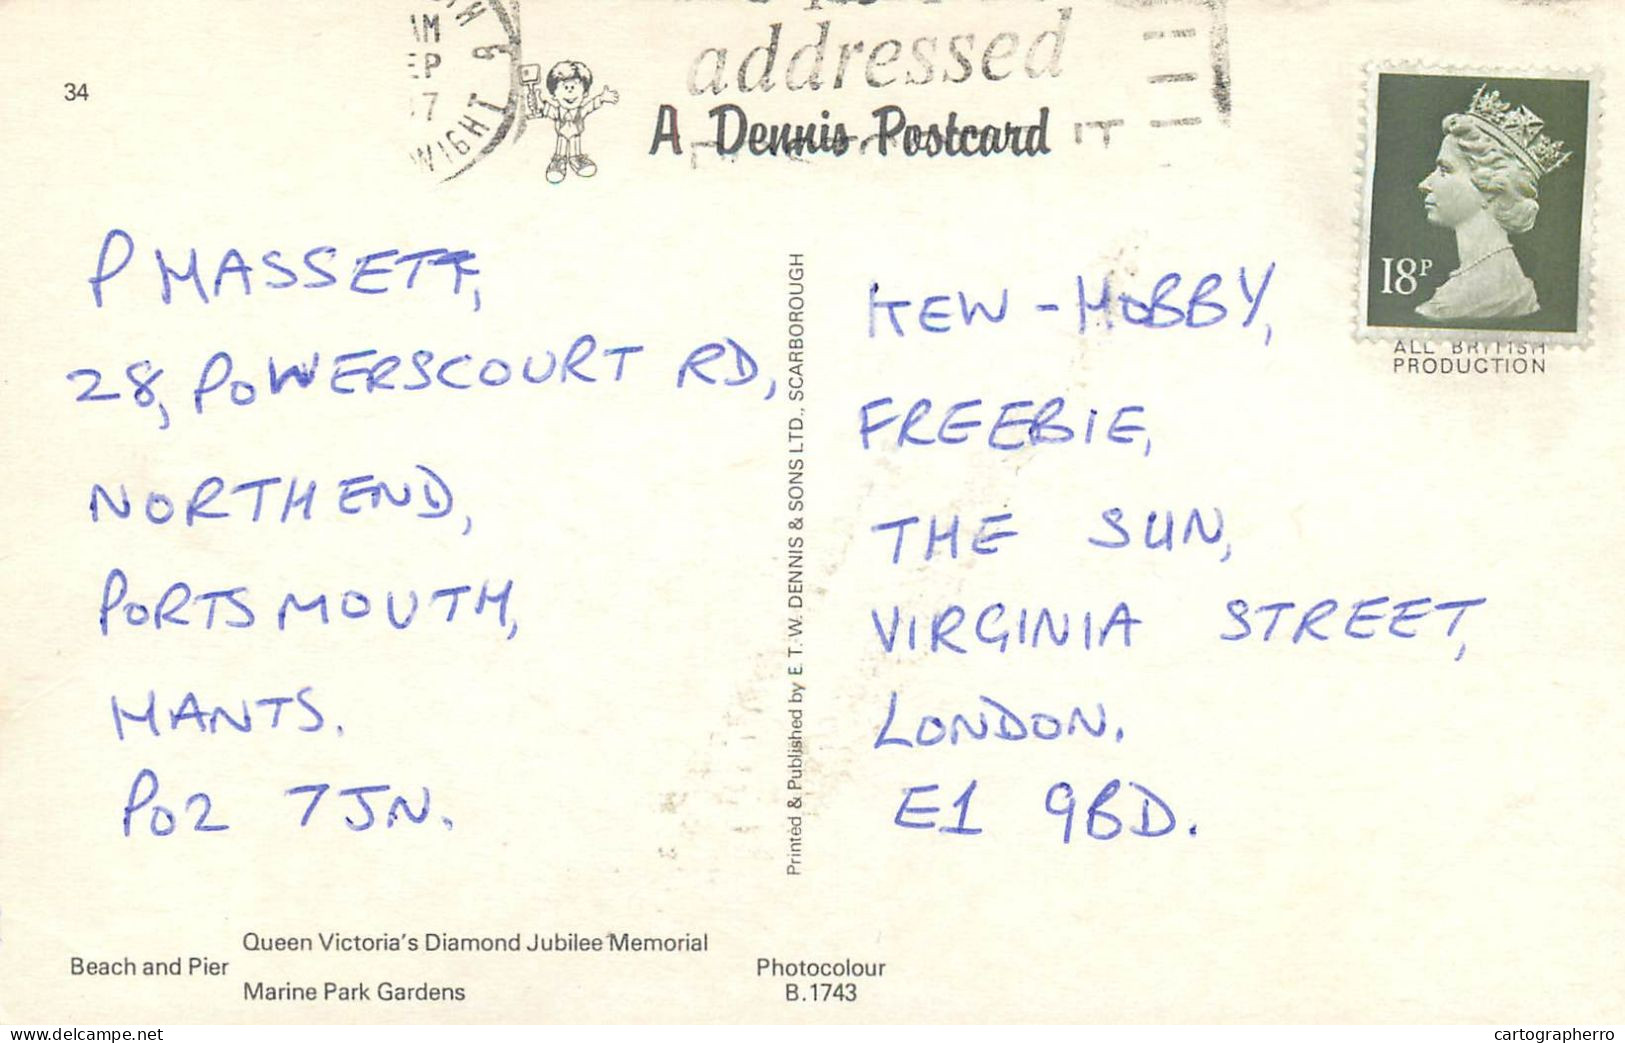 34
AM
EP
WIGHT
addressed
A Dennis Postcard
18P
ALL BRITISH
PRODUCTION
P MASSETT,
28, POWERSCOURT RD,
NORTH END,
PORTSMOUTH,
HANTS.
PO2 7JN.
Printed & Published by E. T. W. DENNIS & SONS LTD., SCARBOROUGH
KEW-HOBBY,
FREEBIE,
THE SUN,
VIRGINIA STREET,
LONDON.
E1 9BD.
Queen Victoria's Diamond Jubilee Memorial
Beach and Pier
Marine Park Gardens
Photocolour
B.1743
delcampe.net
cartographerro